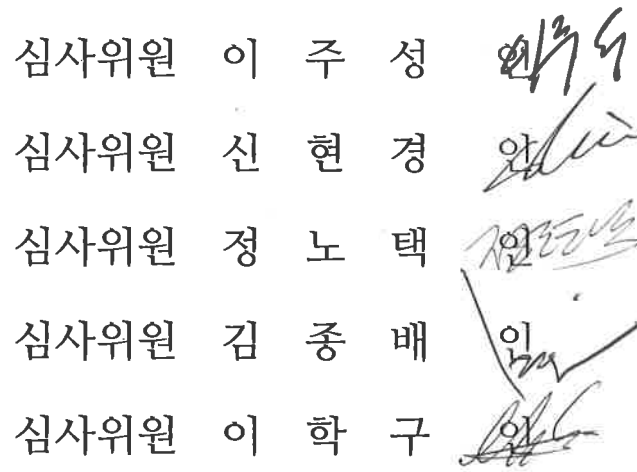 심사위원 이 주 성 인
심사위원 신 현 경 인
심사위원 정 노 택 인
심사위원 김 종 배 인
심사위원 이 학 구 인